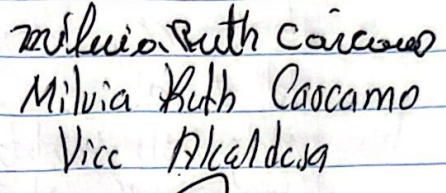 Milvia Ruth Cárcamo
Milvia Ruth Caocamo
Vice Alcaldesa